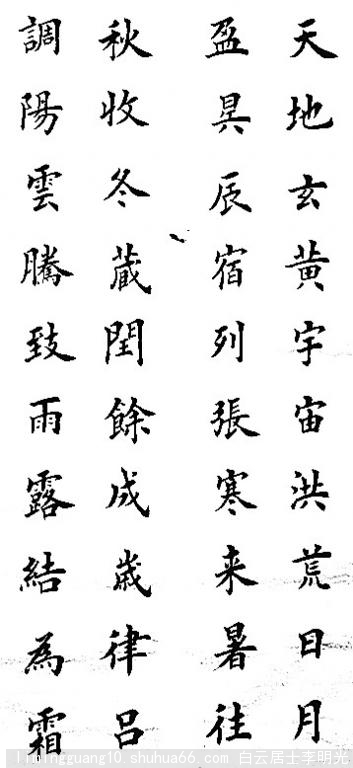 天地玄黄宇宙洪荒日月
盈昃辰宿列張寒来暑往
秋收冬蔵閏餘成歲律吕
調陽雲騰致雨露結為霜
limingguang10.shuhua66.com 白云居士李明光